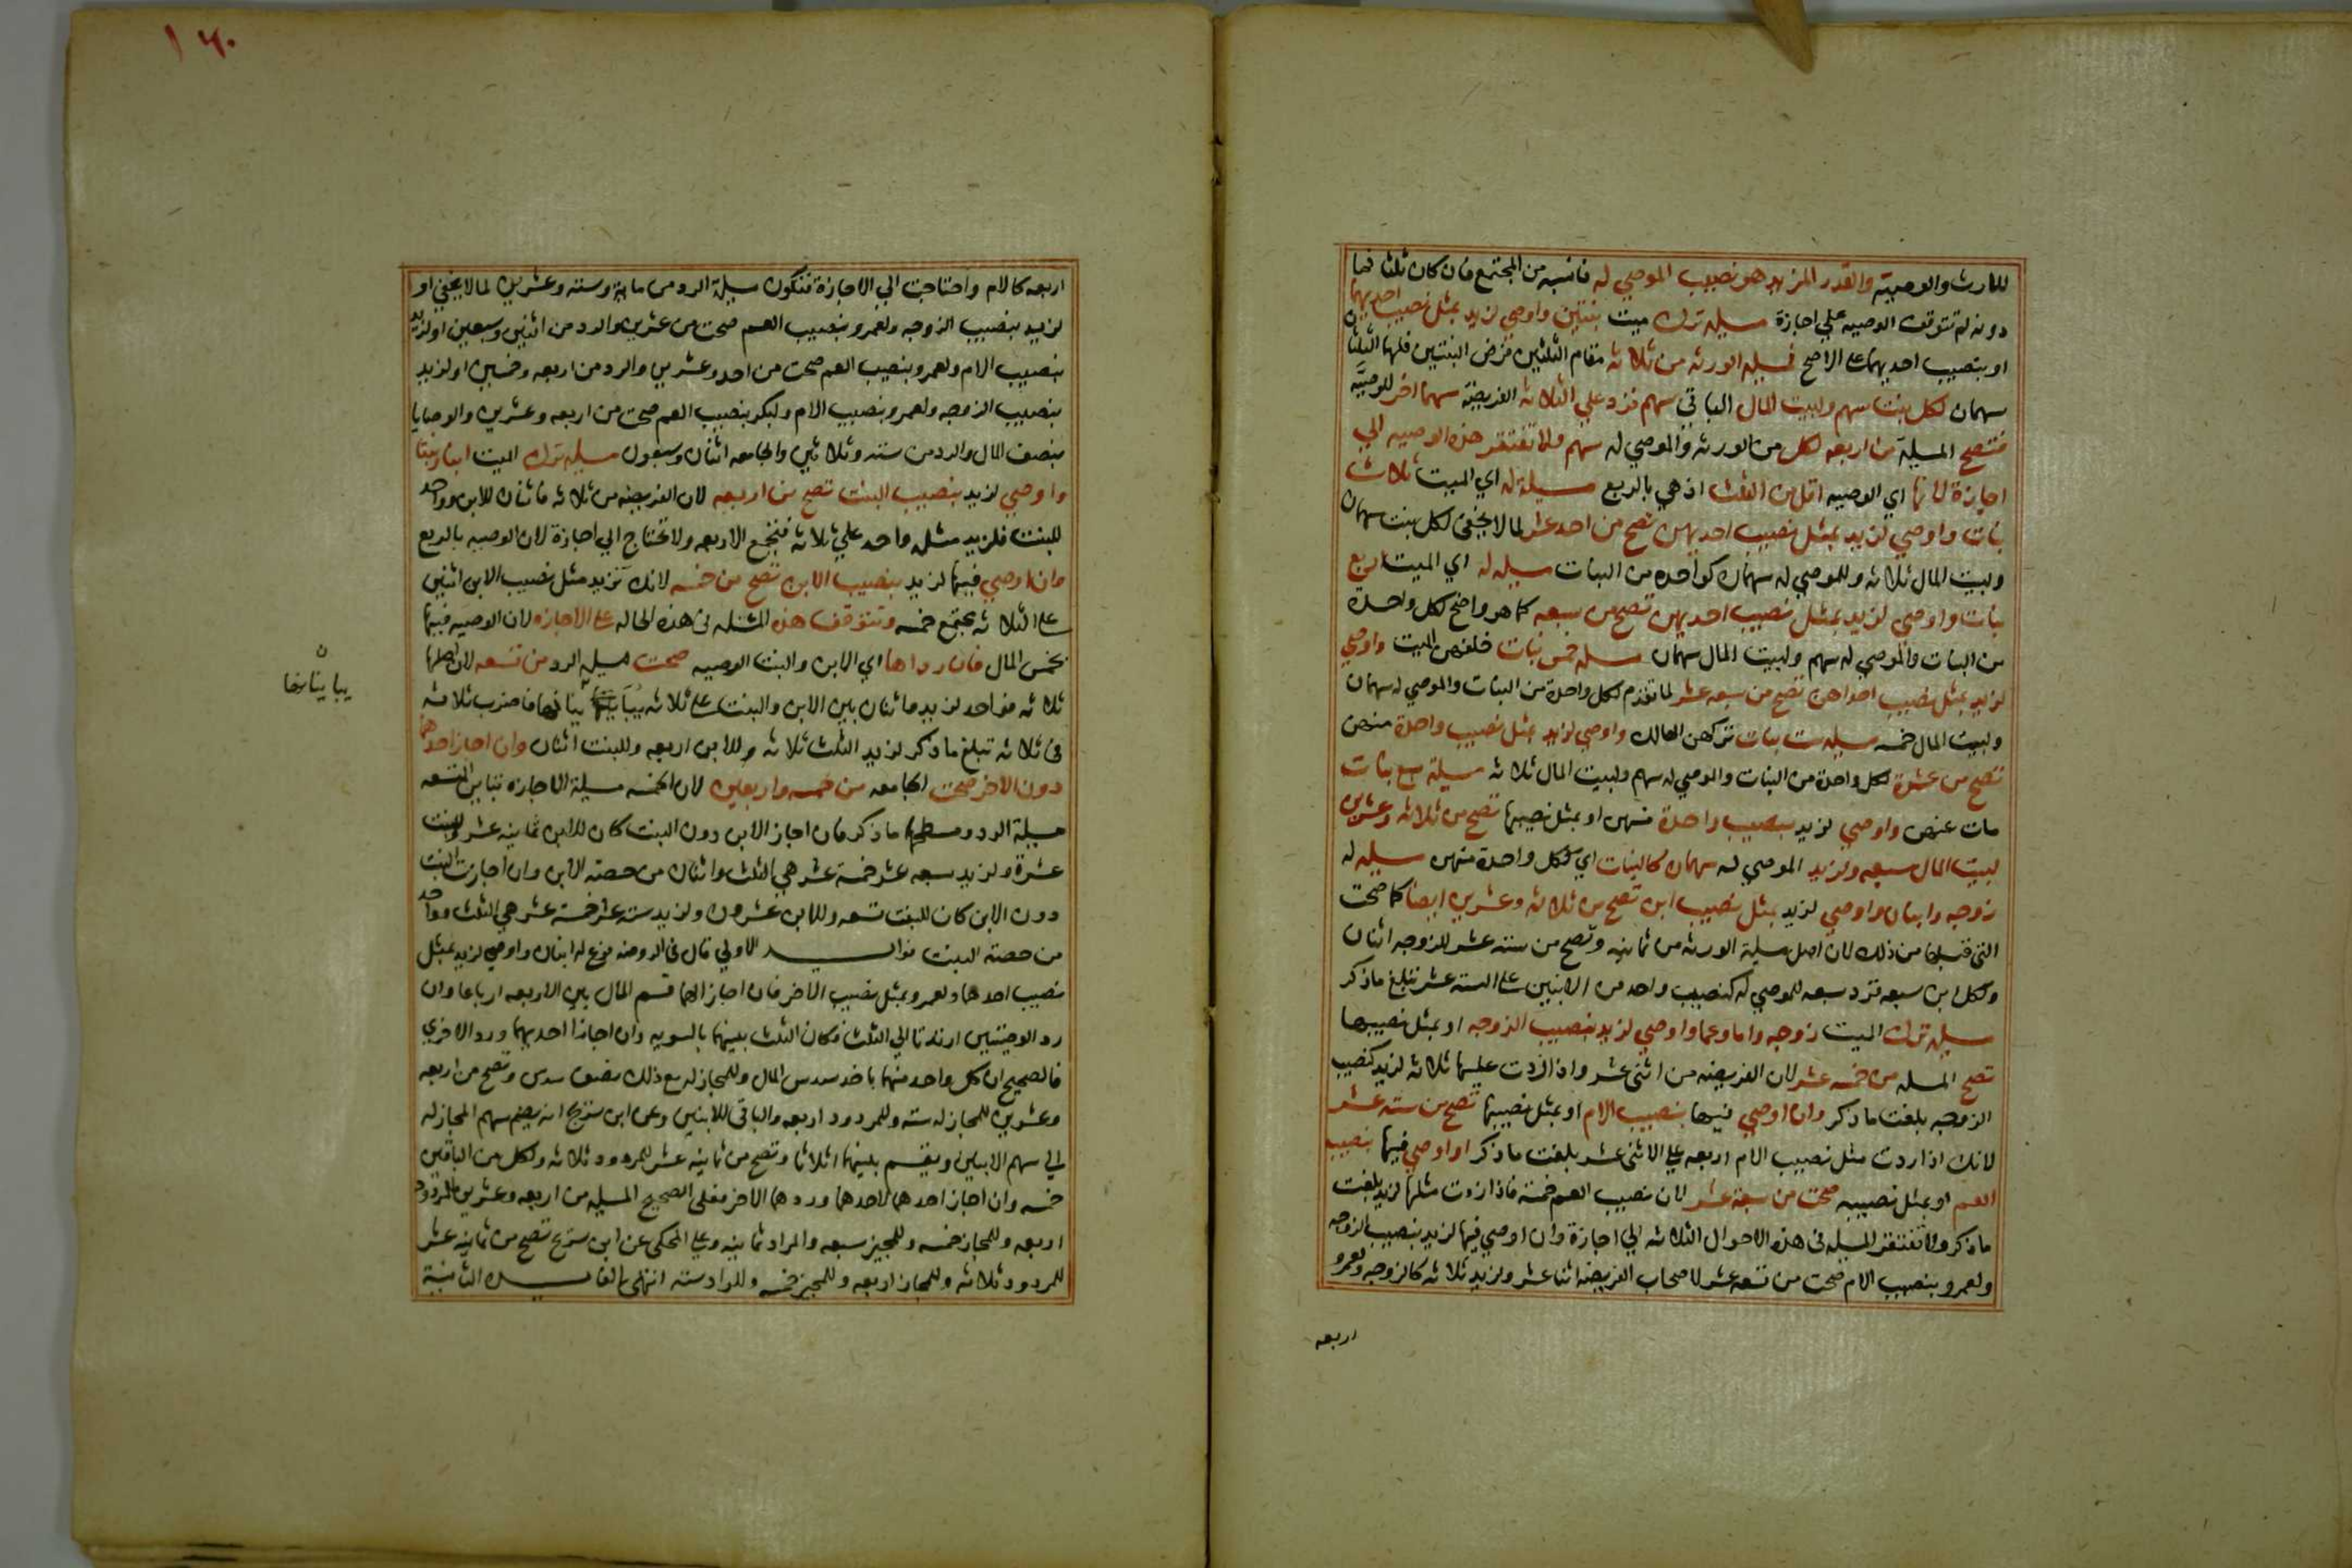 للارث والوصية والقدر المزيد هو نصيب الموصي له فانسبه من المجتمع فان كان ثلثا فما
دونه لم تتوقف الوصيه علي اجازة مسيله ترك ميت بنتين واوصي لزيد بمثل نصيب احديهما
او بنصيب احديهما على الاصح فمسيله الورثه من ثلاثة مقام الثلثين فرض البنتين فلهما الثلثان
سهمان لكل بنت سهم ولبيت المال الباقي سهم فزد علي الثلاثة الفريضة سهما اخر للوصيَّه
فتصح المسيلة من اربعه لكل من الورثه والموصي له سهم ولا تفتقر هذه الوصيه الي
اجازة لانها اي الوصيه اقل من الثلث اذ هي بالربع مسيلة له اي الميت ثلاث
بنات واوصي لزيد بمثل نصيب احديهن تصح من احد عشر لما لا يخفى لكل بنت سهمان
ولبيت المال ثلاثه وللموصي له سهمان كواحده من البنات مسيله له اي الميت اربع
بنات واوصي لزيد بمثل نصيب احديهن تصح من سبعه كما هو واضح لكل واحدة
من البنات والموصي له سهم ولبيت المال سهمان مسله خمس بنات خلفهن الميت واوصي
لزيد بمثل نصيب احداهن تصح من سبعه عشر لما تقدم لكل واحدة من البنات والموصي له سهمان
ولبيت المال خمسه مسيله ست بنات تركهن الهالك واوصي لزيد بمثل نصيب واحدة منهن
تصح من عشرة لكل واحدة من البنات والموصي له سهم ولبيت المال ثلاثه مسيلة سبع بنات
مات عنهن واوصي لزيد بنصيب واحدة منهن او بمثل نصيبها تصح من ثلاثه وعشرين
لبيت المال سبعه ولزيد الموصي له سهمان كالبنات اي لكل واحدة منهن مسيله له
زوجه وابنان واوصي لزيد بمثل نصيب ابن تصح من ثلاثه وعشرين ايضا كما صحت
التي قبلها من ذلك لان اصل مسيلة الورثه من ثمانيه وتصح من ستة عشر للزوجه اثنان
ولكل ابن سبعه فزد سبعه للموصي له كنصيب واحد من الابنين على الستة عشر تبلغ ما ذكر
مسيله ترك الميت زوجه واما وعما واوصي لزيد بنصيب الزوجه او بمثل نصيبها
تصح المسله من خمسه عشر لان الفريضه من اثنى عشر واذا زدت عليها ثلاثه لزيد كنصيب
الزوجه بلغت ما ذكر وان اوصي فيها بنصيب الام او بمثل نصيبها تصح من سته عشر
لانك اذا زدت مثل نصيب الام اربعه على الاثنى عشر بلغت ما ذكر او اوصي فيها بنصيب
العم او بمثل نصيبه صحت من سبعة عشر لان نصيب العم خمسة فاذا زدت مثلها لزيد بلغت
ما ذكر ولا تفتقر المسيله في هذه الاحوال الثلاثه الي اجازة وان اوصي فيها لزيد بنصيب الزوجه
ولعمرو بنصيب الام صحت من تسعه عشر لاصحاب الفريضه اثنا عشر ولزيد ثلاثه كالزوجه ولعمرو
اربعه
١٦٠
اربعه كالام واحتاجت الي الاجازة فتكون مسيلة الرد من ماية وسته وعشرين لما لا يخفي او
لزيد بنصيب الزوجه ولعمرو بنصيب العم صحت من عشرين والرد من اثنين وسبعين او لزيد
بنصيب الام ولعمرو بنصيب العم صحت من احد وعشرين والرد من اربعه وخمسين او لزيد
بنصيب الزوجه ولعمرو بنصيب الام ولبكر بنصيب العم صحت من اربعه وعشرين والوصايا
بنصف المال والرد من سته وثلاثين والجامعه اثنان وسبعون مسيله ترك الميت ابنا وبنتا
واوصي لزيد بنصيب البنت تصح من اربعه لان الفريضه من ثلاثه فاثنان للابن وواحد
للبنت فلزيد مثله واحد علي ثلاثه فتجتمع الاربعه ولا تحتاج الي اجازة لان الوصيه بالربع
وان اوصي فيها لزيد بنصيب الابن تصح من خمسه لانك تزيد مثل نصيب الابن اثنين
على الثلاثه يجتمع خمسه وتتوقف هذه المسئله في هذه الحاله على الاجازه لان الوصيه فيها
بخمس المال فان رداها اي الابن والبنت الوصيه صحت مسيله الرد من تسعه لان اصلها
ثلاثه فواحد لزيد واثنان بين الابن والبنت على ثلاثه يباينانها فاضرب ثلاثة
ن
يباينانها
في ثلاثه تبلغ ما ذكر لزيد الثلث ثلاثه وللابن اربعه وللبنت اثنان وان اجاز احدهما
دون الاخر صحت الجامعه من خمسه واربعين لان الخمسه مسيلة الاجازه تباين التسعه
مسيلة الرد ومسطحهما ما ذكر فان اجاز الابن دون البنت كان للابن ثمانيه عشر وللبنت
عشرة ولزيد سبعه عشر خمسة عشر هي الثلث واثنان من حصة الابن وان اجازت البنت
دون الابن كان للبنت تسعه وللابن عشرون ولزيد سته عشر خمسة عشر هي الثلث وواحد
من حصة البنت فوائد الاولي قال في الروضه فرع له ابنان واوصي لزيد بمثل
نصيب احدهما ولعمرو بمثل نصيب الاخر فان اجازاهما قسم المال بين الاربعه ارباعا وان
رد الوصيتين ارتدتا الي الثلث فكان الثلث بينهما بالسويه وان اجازا احديهما وردا الاخري
فالصحيح ان كل واحد منهما ياخذ سدس المال وللمجاز له مع ذلك نصف سدس وتصح من اربعه
وعشرين للمجاز له سته وللمردود اربعه والباقي للابنين وعن ابن سريج انه يضم سهم المجاز له
الي سهم الابنين ويقسم بينهما اثلاثا وتصح من ثمانيه عشر للمردود ثلاثه ولكل من الباقين
خمسه وان اجاز احدهما لاحدهما وردهما الاخر فعلى الصحيح المسيله من اربعه وعشرين للمردود
اربعه وللمجاز خمسه وللمجيز سبعه والمراد ثمانيه وعلى المحكى عن ابن سريج تصح من ثمانيه عشر
للمردود ثلاثه وللمجاز اربعه وللمجيز خمسه وللراد سته انتهى الفايده الثانية